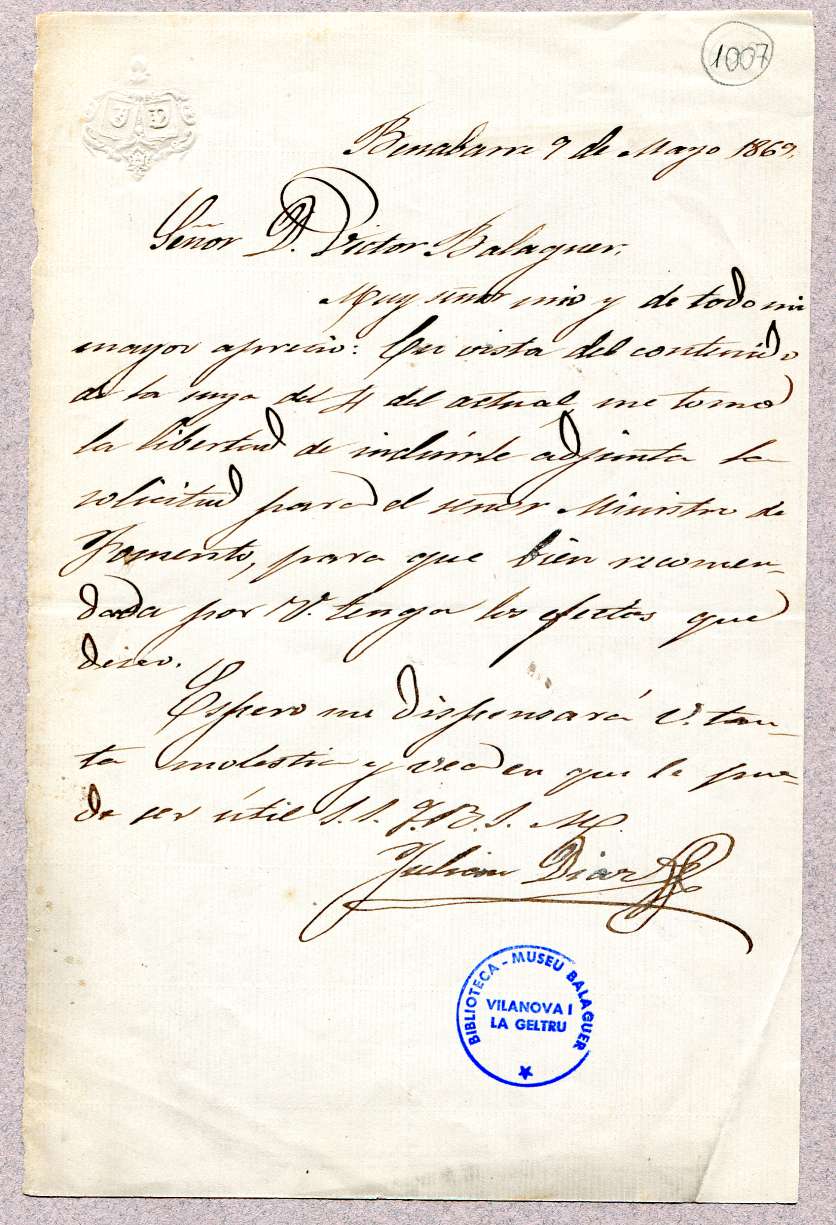 1007
J D
Benabarre 7 de Mayo 1869.
Señor D. Victor Balaguer.
Muy señor mio y de todo mi
mayor aprecio: En vista del contenido
de la suya del 4 del actual me tomo
la libertad de incluirle adjunta la
solicitud para el señor Ministro de
Fomento, para que bien recomen-
dada por V. tenga los efectos que
deseo.
Espero me dispensará V. tan-
ta molestia y vea en que le pue-
de ser útil S. S. Q. B. S. M.
Julian Diaz
BIBLIOTECA - MUSEU BALAGUER
VILANOVA I
LA GELTRU